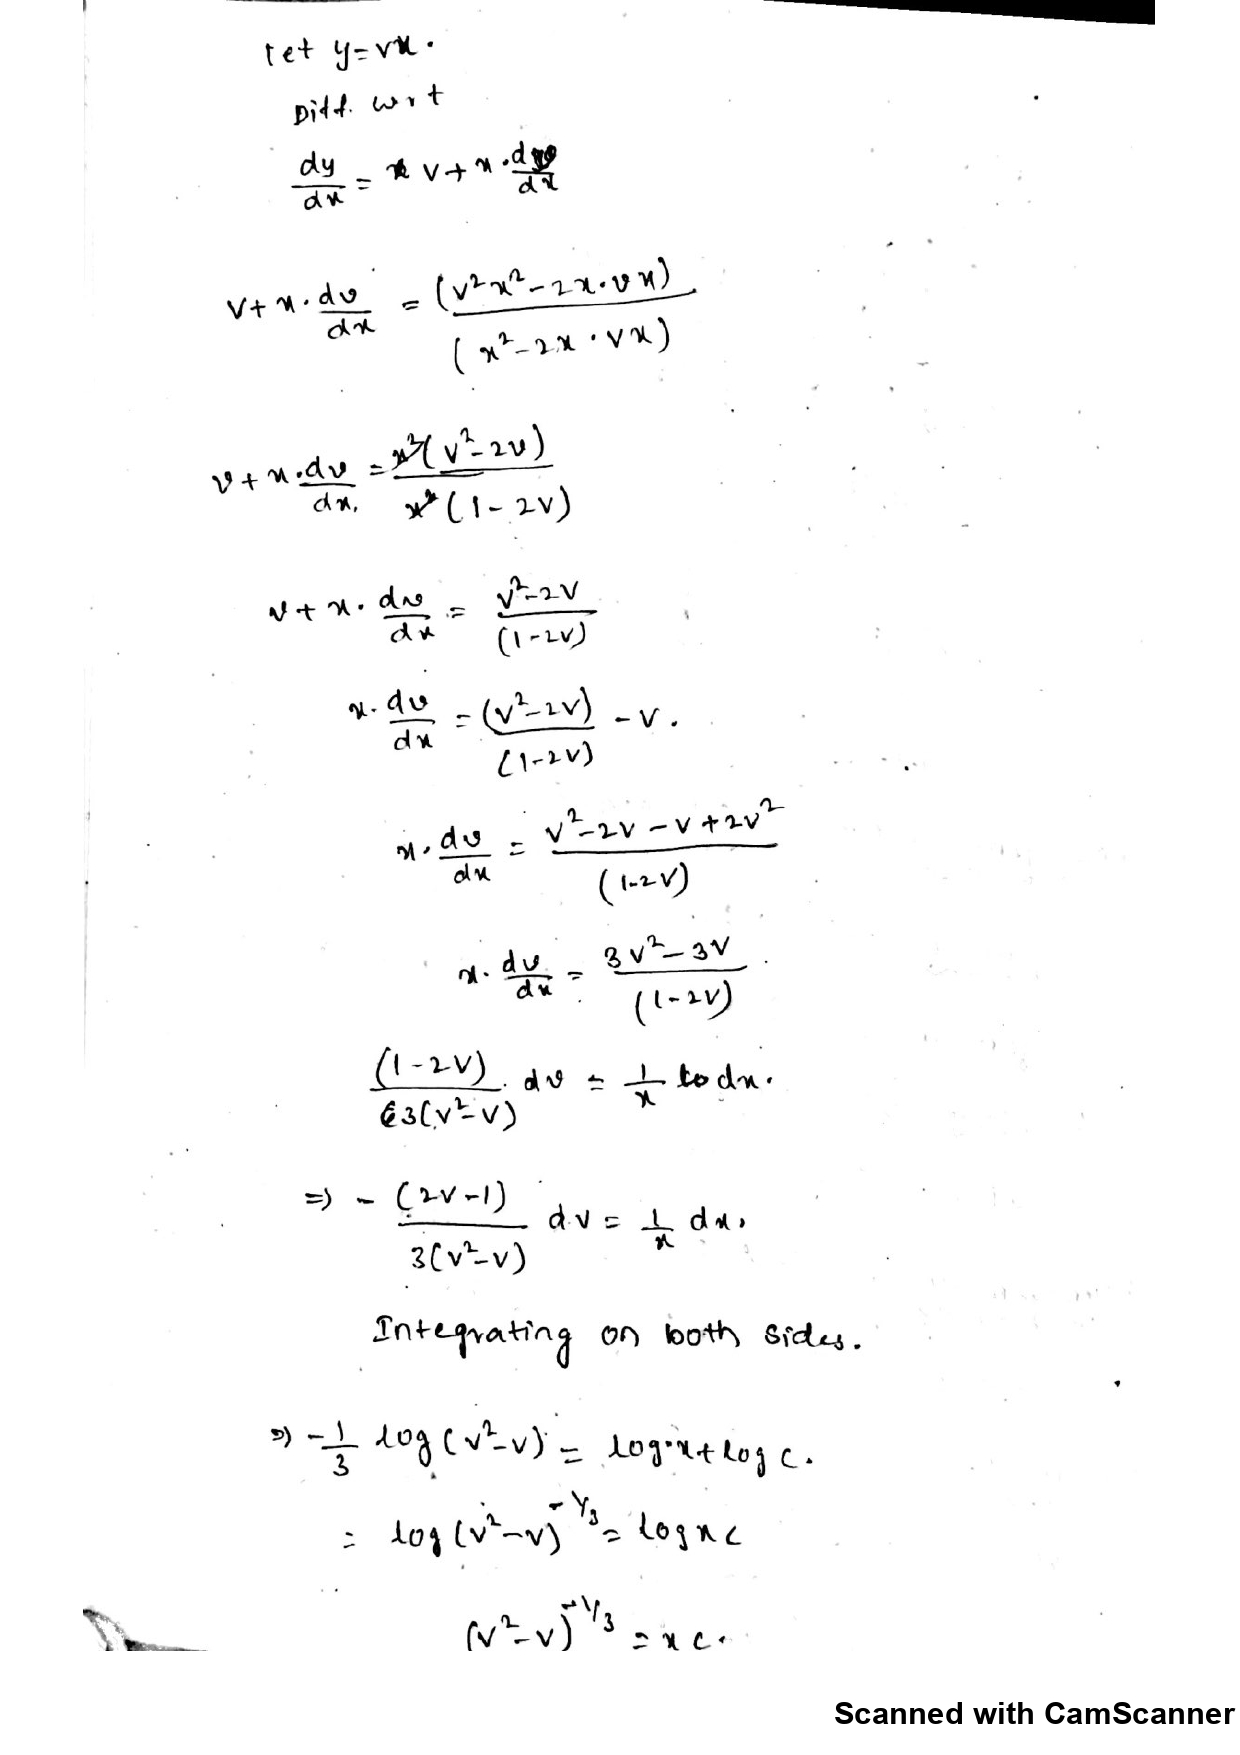 let y=vx.
Diff. wrt
dy/dx = v+x.dv/dx
v+x.dv/dx = (v²x²-2x.vx)/(x²-2x.vx)
v+x.dv/dx = x²(v²-2v)/x²(1-2v)
v+x.dv/dx = v²-2v/(1-2v)
x.dv/dx = (v²-2v)/(1-2v) - v.
x.dv/dx = v²-2v-v+2v²/(1-2v)
x.dv/dx = 3v²-3v/(1-2v)
(1-2v)/3(v²-v) . dv = 1/x dx.
=> - (2v-1)/3(v²-v) dv = 1/x dx,
Integrating on both sides.
=> -1/3 log(v²-v) = log x + log c.
= log(v²-v)^-1/3 = log x c
(v²-v)^-1/3 = x c.
Scanned with CamScanner